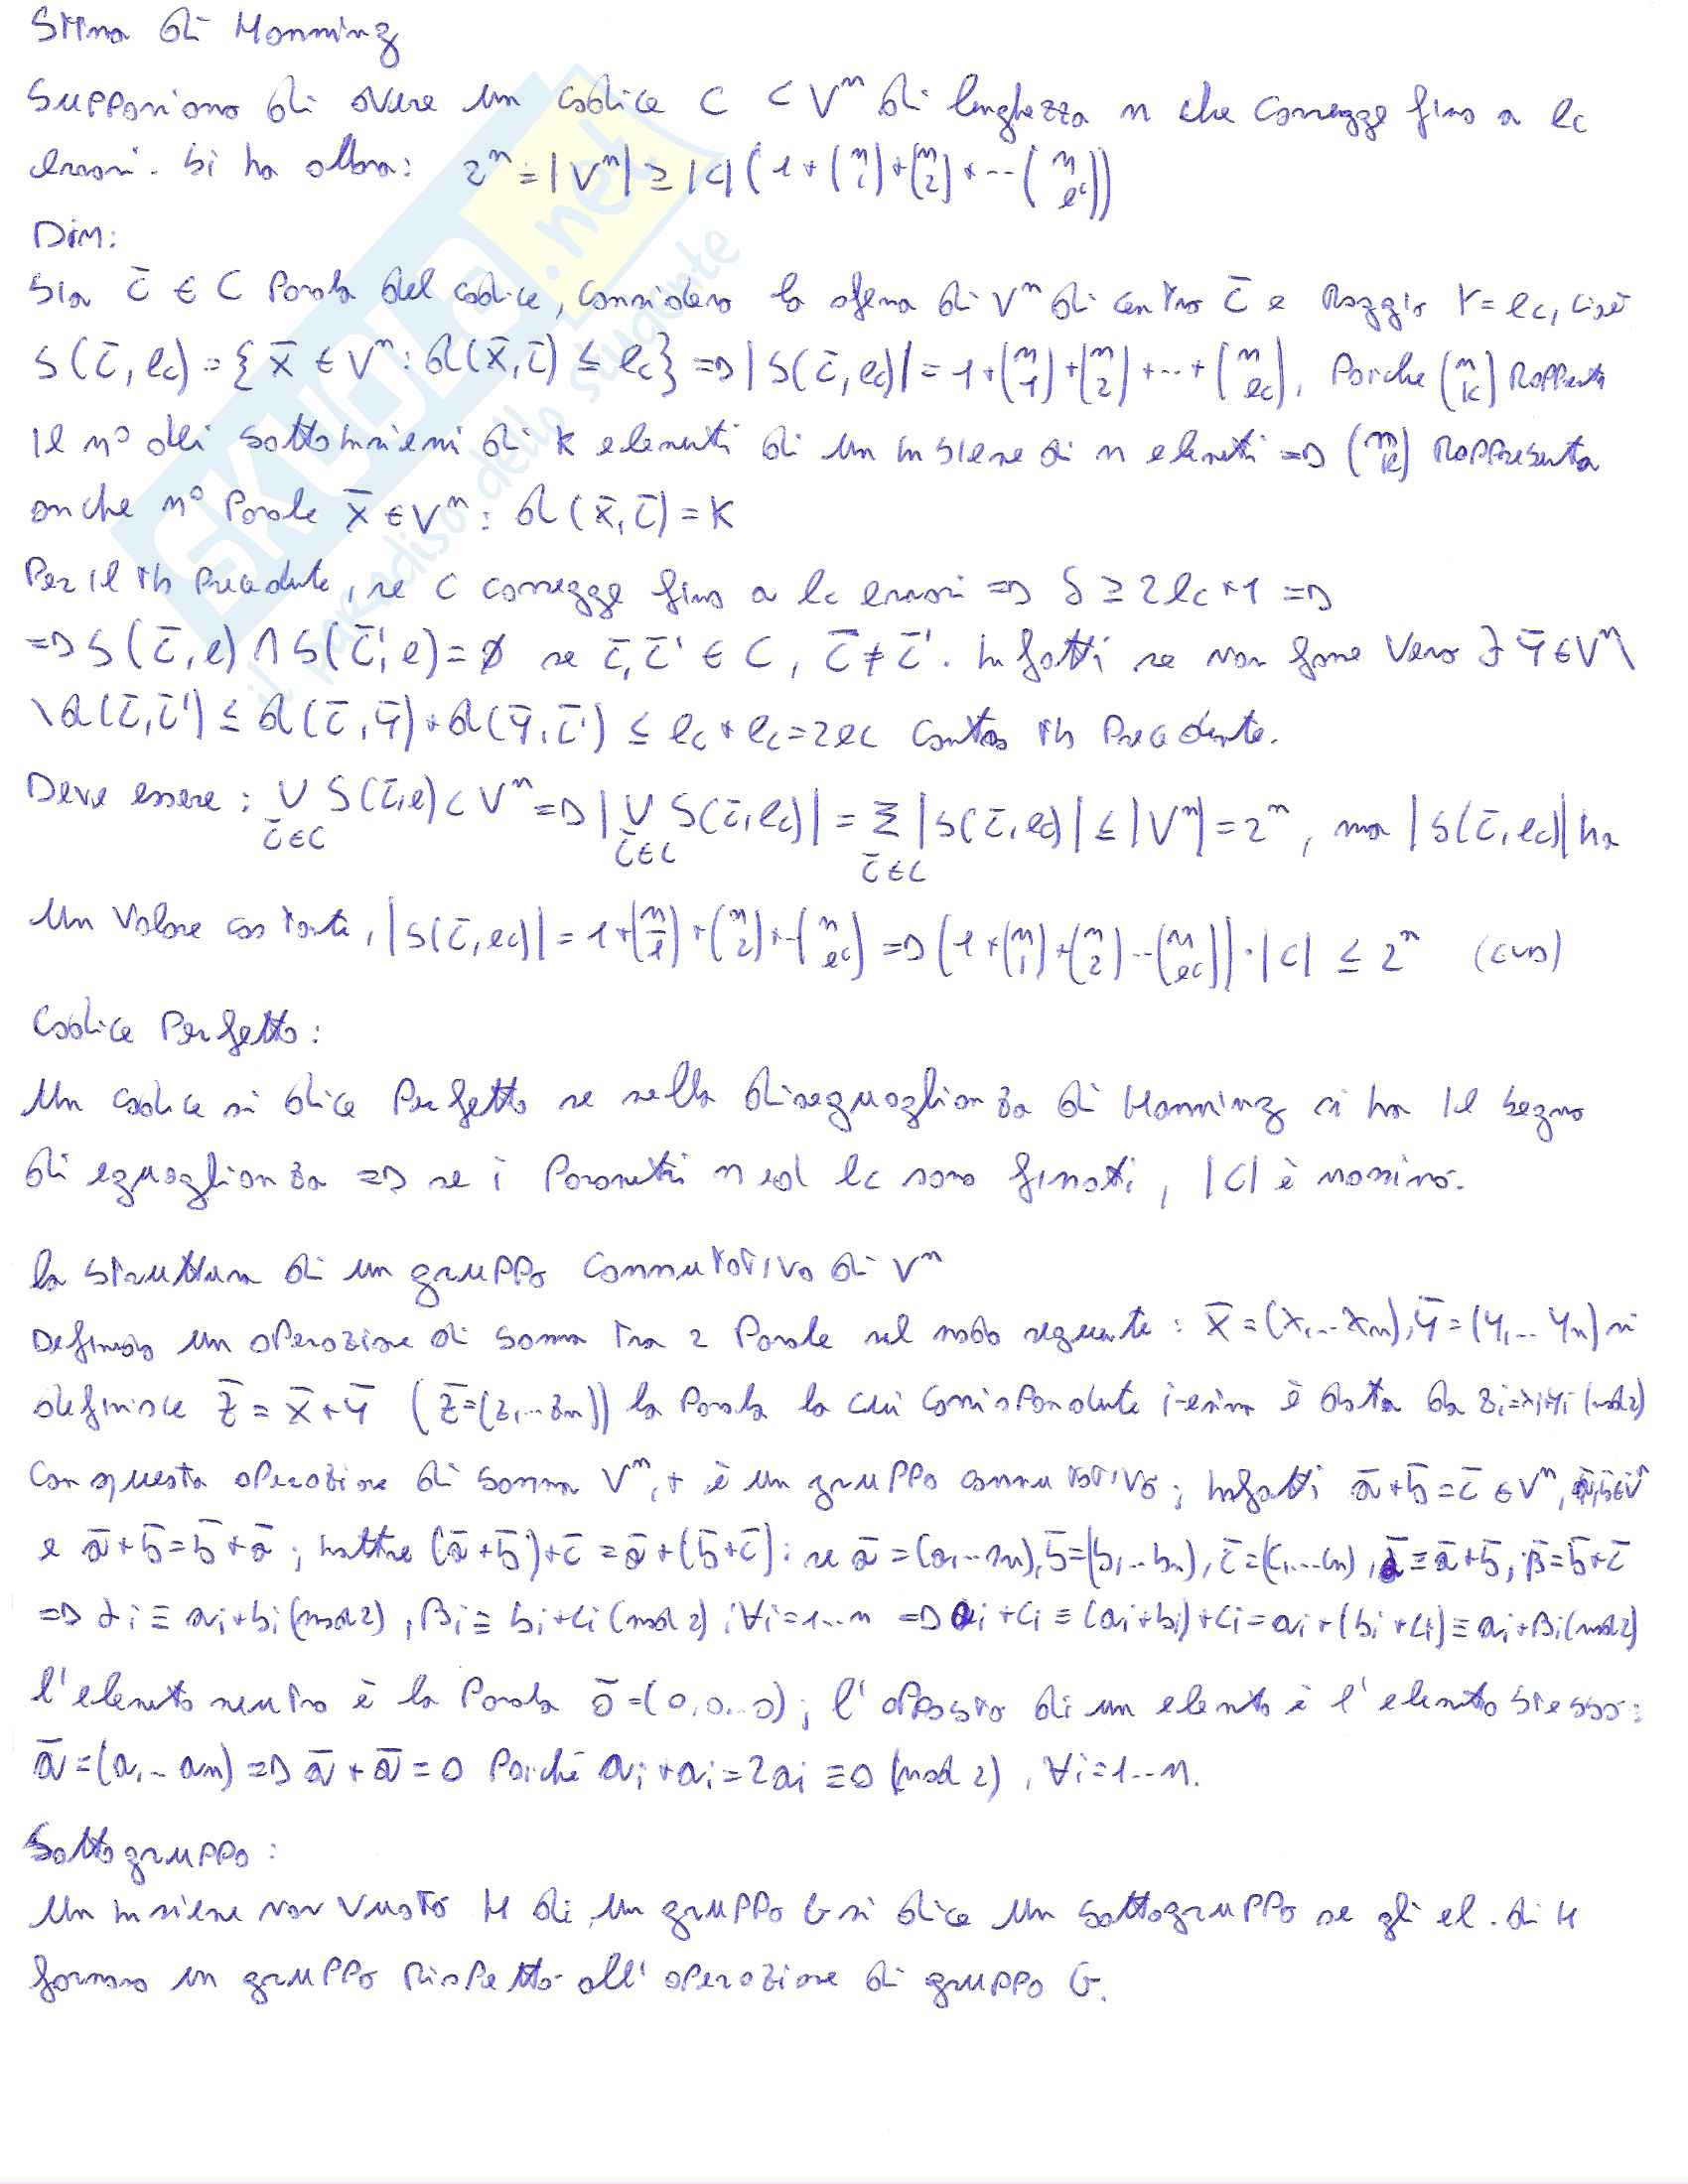 Stima di Hamming
Supponiamo di avere un codice C ⊂ Vⁿ di lunghezza n che corregge fino a e_c
errori. Si ha allora: 2ⁿ = |Vⁿ| ≥ |C| (1 + (n 1) + (n 2) + ... (n e_c))
Dim:
Sia c̄ ∈ C parola del codice, considero la sfera di Vⁿ di centro c̄ e raggio r = e_c, cioè
S(c̄, e_c) = { x̄ ∈ Vⁿ : d(x̄, c̄) ≤ e_c } => |S(c̄, e_c)| = 1 + (n 1) + (n 2) + ... + (n e_c), poiche (n k)
il n° dei sottoinsiemi di k elementi di un insieme di n elementi => (n k) rappresenta
anche n° parole x̄ ∈ Vⁿ : d(x̄, c̄) = k
Per il th precedente, se C corregge fino a e_c errori => δ ≥ 2e_c + 1 =>
=> S(c̄, e) ∩ S(c̄', e) = ∅ se c̄, c̄' ∈ C, c̄ ≠ c̄'. Infatti se non fosse vero ∃ ȳ ∈ Vⁿ \
\ d(c̄, c̄') ≤ d(c̄, ȳ) + d(ȳ, c̄') ≤ e_c + e_c = 2e_c contro th precedente.
Deve essere : ∪ S(c̄, e) ⊂ Vⁿ => | ∪ S(c̄, e_c)| = Σ |S(c̄, e_c)| ≤ |Vⁿ| = 2ⁿ, ma |S(c̄, e_c)| ha
c̄ ∈ C c̄ ∈ C c̄ ∈ C
un valore costante, |S(c̄, e_c)| = 1 + (n 1) + (n 2) + .. (n e_c) => (1 + (n 1) + (n 2) ... (n e_c)) · |C| ≤ 2ⁿ (CVD)
Codice Perfetto:
Un codice si dice perfetto se nella diseguaglianza di Hamming si ha il segno
di eguaglianza => se i parametri n ed e_c sono fissati, |C| è massimo.
La struttura di un gruppo commutativo di Vⁿ
Definendo un operazione di somma tra 2 parole nel modo seguente : x̄ = (x₁...xₙ), ȳ = (y₁...yₙ) si
definisce z̄ = x̄ + ȳ (z̄ = (z₁...zₙ)) la parola la cui corrispondente i-esima è data da zᵢ = xᵢ + yᵢ (mod 2)
Con questa operazione di somma Vⁿ, + è un gruppo commutativo; infatti ā + b̄ = c̄ ∈ Vⁿ,
e ā + b̄ = b̄ + ā ; inoltre (ā + b̄) + c̄ = ā + (b̄ + c̄) : se ā = (a₁...aₙ), b̄ = (b₁...bₙ), c̄ = (c₁...cₙ), ᾱ ≡ ā + b̄, β̄ = b̄ + c̄
=> αᵢ ≡ aᵢ + bᵢ (mod 2), βᵢ ≡ bᵢ + cᵢ (mod 2), ∀i = 1...n => αᵢ + cᵢ ≡ (aᵢ + bᵢ) + cᵢ = aᵢ + (bᵢ + cᵢ) ≡ aᵢ + βᵢ (mod 2)
l'elemento neutro è la parola ō = (0, 0...0); l'opposto di un elemento è l'elemento stesso:
ā = (a₁...aₙ) => ā + ā = 0 poiché aᵢ + aᵢ = 2aᵢ ≡ 0 (mod 2), ∀i = 1...n.
Sottogruppo:
Un insieme non vuoto H di un gruppo G si dice un sottogruppo se gli el. di H
formano un gruppo rispetto all'operazione di gruppo G.
SKUOLA.net
il paradiso dello studente